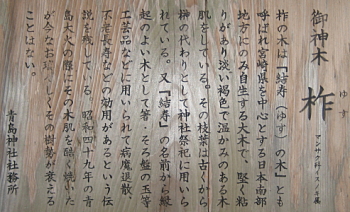 御神木 柞
ゆす
マンサク科イスノキ属
柞の木は「結寿(ゆす)の木」とも
呼ばれ宮崎県を中心とする日本南部
地方にのみ自生する大木で、堅く粘
りがあり淡い褐色で温かみのある木
肌をしている。その枝葉は古くから
榊の代わりとして神社祭祀に用いら
れている。又「結寿」の名前から縁
起のよい木として箸・そろ盤の玉等
工芸品などに用いられて病魔退散、
不老長寿などの効用があるという伝
説を残している。昭和四十九年の青
島大火の際にその木肌を酷く焼いた
が今なお逞しくその樹勢が衰える
ことはない。
青島神社社務所